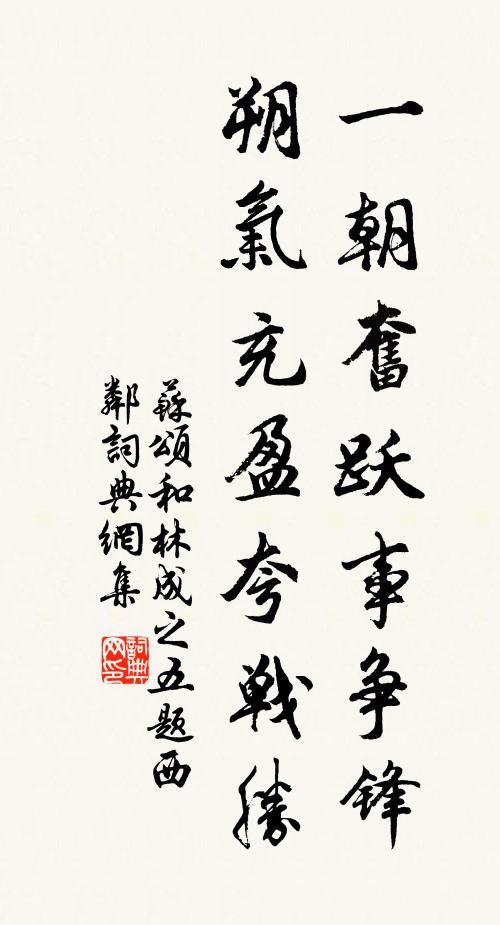 一朝奮跃事争锋
朔氣充盈夸戰勝
蘇頌和林成之五题西
鄰詞典網集
詞典网印